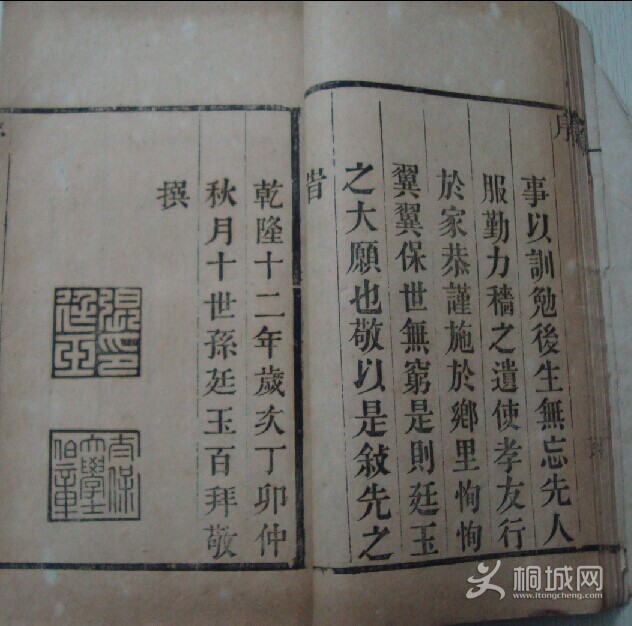 序
事以訓勉後生無忘先人
服勤力穡之遺使孝友行
於家恭謹施於鄉里恂恂
翼翼保世無窮是則廷玉
之大願也敬以是敍先之
旹
乾隆十二年歲次丁卯仲
秋月十世孫廷玉百拜敬
撰
張印廷玉
太保大學士伯章
桐城网
www.itongcheng.com